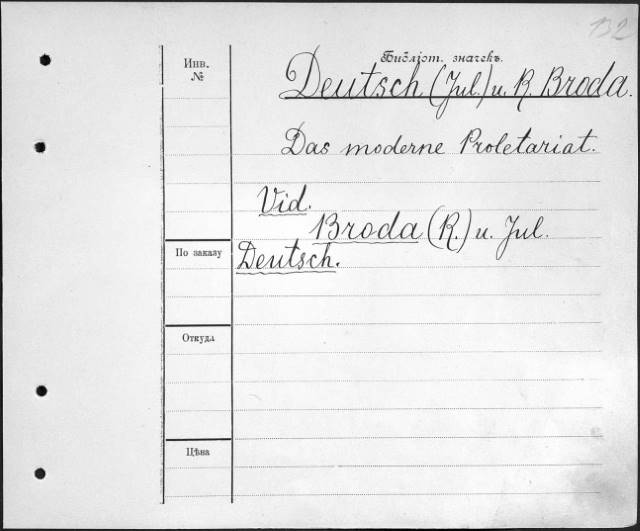 132
Библіот. значекъ.
Инв.
№
Deutsch (Jul.) u. R. Broda.
Das moderne Proletariat.
Vid.
Broda (R.) u. Jul.
Deutsch.
По заказу
Откуда
Цѣна